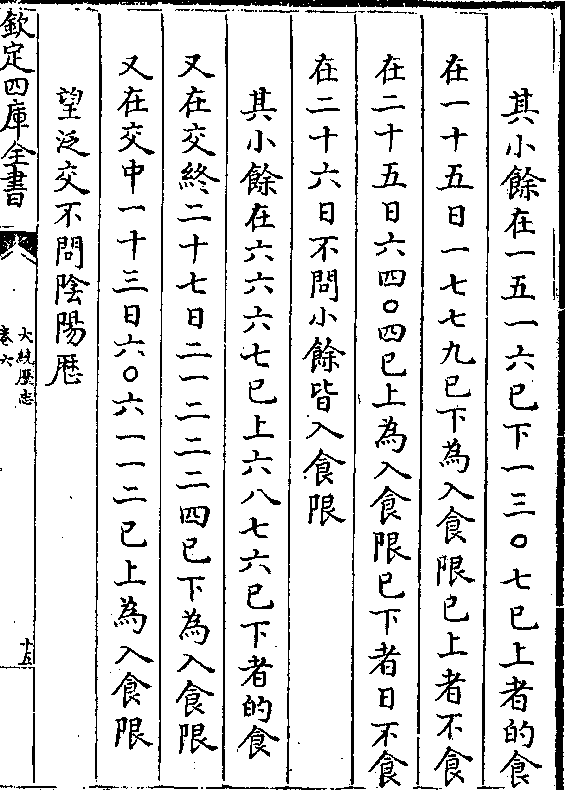 其小餘在一五一六已下一三〇七已上者的食
在一十五日一七七九已下為入食限已上者不食
在二十五日六四〇四已上為入食限已下者日不食
在二十六日不問小餘皆入食限
其小餘在六六六七已上六八七六已下者的食
又在交終二十七日二一二二二四已下為入食限
又在交中一十三日六〇六一一二已上為入食限
望泛交不問陰陽厯
欽定四庫全書
大統厯志
卷六
十五